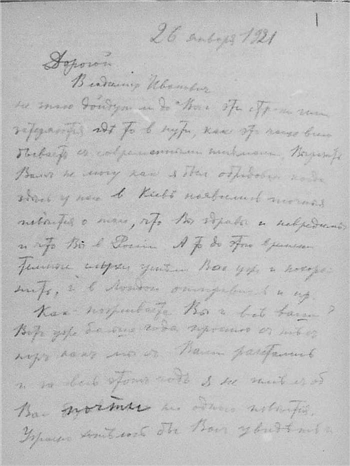 1
26 января 1921
Дорогой
Владимир Иванович
не знаю дойдут ли до Вас эти строки или
затеряются где то в пути, как это часто
бывает с современными письмами. Выразить
Вам не могу как я был обрадован когда
здесь у нас в Киеве появились точные
известия о том, что Вы здравы и невредимы
и что Вы в России А то до этого времени
Вас уже и похоро
нить, и в Лондон отправить и пр.
Как поживаете Вы и все ваши?
Вот уже больше года прошло с тех
пор как мы с Вами расстались
и за весь этот год я не имел об
Вас почти ни одного известия.
хотелось бы Вас увидеть и